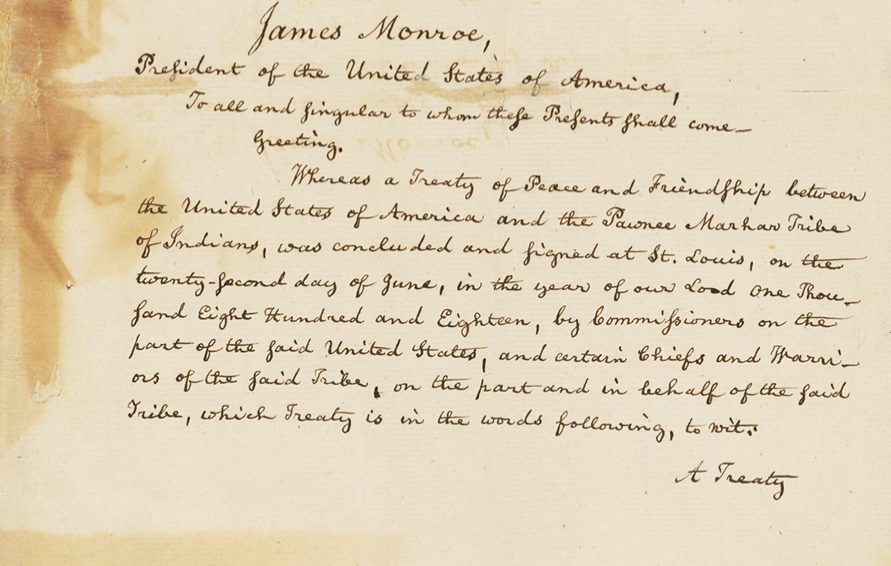 James Monroe,
President of the United States of America,
To all and singular to whom these Presents shall come—
Greeting.
Whereas a Treaty of Peace and Friendship between
the United States of America and the Pawnee Marhar Tribe
of Indians, was concluded and signed at St. Louis, on the
twenty-second day of June, in the year of our Lord one Thou-
sand Eight Hundred and Eighteen, by Commissioners on the
part of the said United States, and certain Chiefs and Warri-
ors of the said Tribe, on the part and in behalf of the said
Tribe, which Treaty is in the words following, to wit.
A Treaty